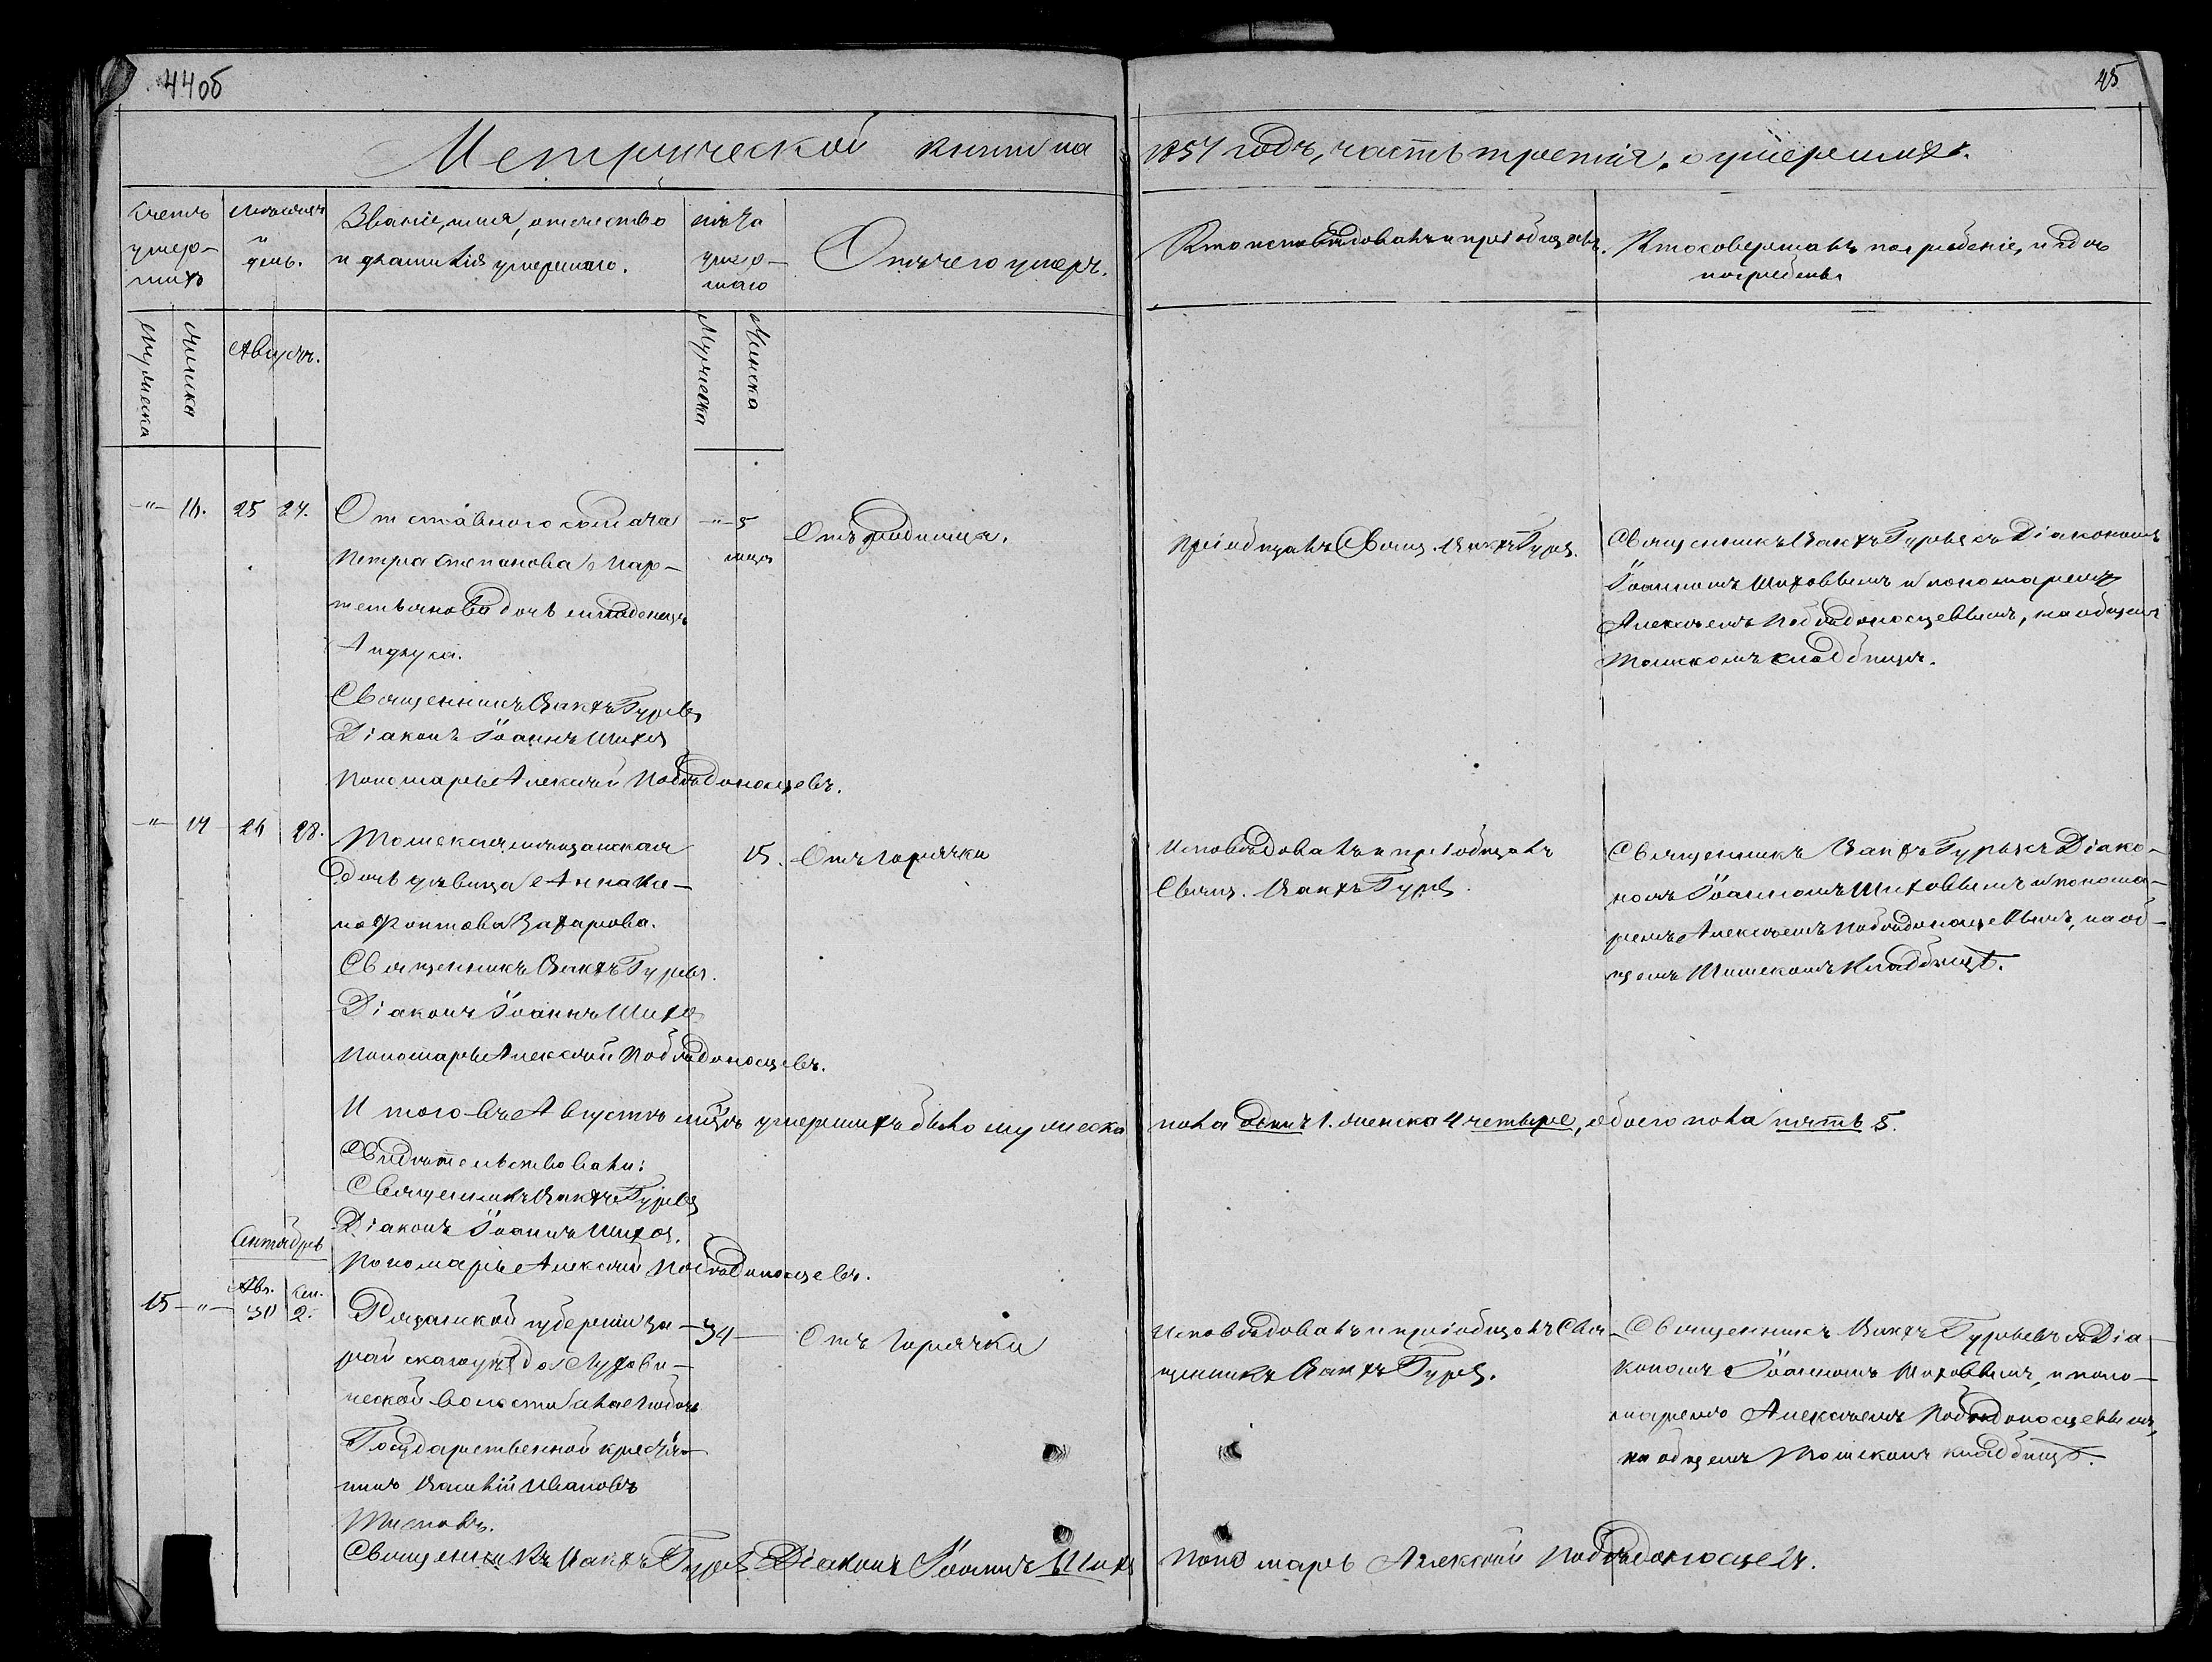 44об
45
Метрической книги на 1857 годъ, часть третія, о умершихъ.
Счетъ умер-
шихъ
Мѣсяцъ
и
день.
Званіе, имя, отечество
и фамилія умершаго.
лѣта
умер-
шаго
Отъ чего умеръ.
Кто исповѣдовалъ и пріобщалъ.
Кто совершалъ погребеніе, и гдѣ
погребены.
Мужеска
Женска
Августъ.
Мужеска
Женска
-"- 16. 25 27.
Отставного солдата
Петра Степанова
дочь младенецъ
Священникъ Вакхъ Гурьевъ
Діаконъ Іоаннъ Шиховъ
Пономарь Алексѣй Побѣдоносцевъ.
-"- 5
мцъ
Отъ родимца.
Пріобщалъ Свящ. Вакхъ Гурьевъ.
Священникъ Вакхъ Гурьевъ съ Діакономъ
Іоанномъ Шиховымъ и пономаремъ
Алексѣемъ Побѣдоносцевымъ, на общемъ
Томскомъ кладбищѣ.
-"- 17 26 28.
Томская мѣщанская
дочь дѣвица Анна Ка-
Захарова.
Священникъ Вакхъ Гурьевъ.
Діаконъ Іоаннъ Шиховъ
Пономарь Алексѣй Побѣдоносцевъ.
15.
Отъ горячки
Исповѣдовалъ и пріобщалъ
Свящ. Вакхъ Гурьевъ.
Священникъ Вакхъ Гурьевъ съ Діако-
номъ Іоанномъ Шиховымъ и понома-
ремъ Алексѣемъ Побѣдоносцевымъ, на об-
щемъ Томскомъ кладбищѣ.
Итого въ Августѣ мцѣ умершихъ было мужеска пола одинъ 1. женска 4 четыре, обоего пола пять 5.
Свидѣтельствовали:
Священникъ Вакхъ Гурьевъ
Діаконъ Іоаннъ Шиховъ.
Пономарь Алексѣй Побѣдоносцевъ.
Сентябрь
Авг. Сен.
15 -"- 30 2.
Рязанской губерніи За-
райскаго уѣзда
волости
Государственной крестья-
нинъ Василій Ивановъ
Титовъ.
34
Отъ горячки
Исповѣдовалъ и пріобщалъ Свя-
щенникъ Вакхъ Гурьевъ.
Священникъ Вакхъ Гурьевъ съ Діа-
кономъ Іоанномъ Шиховымъ, и поно-
маремъ Алексѣемъ Побѣдоносцевымъ,
на общемъ Томскомъ кладбищѣ.
Священникъ Вакхъ Гурьевъ Діаконъ Іоаннъ Шиховъ Пономарь Алексѣй Побѣдоносцевъ.